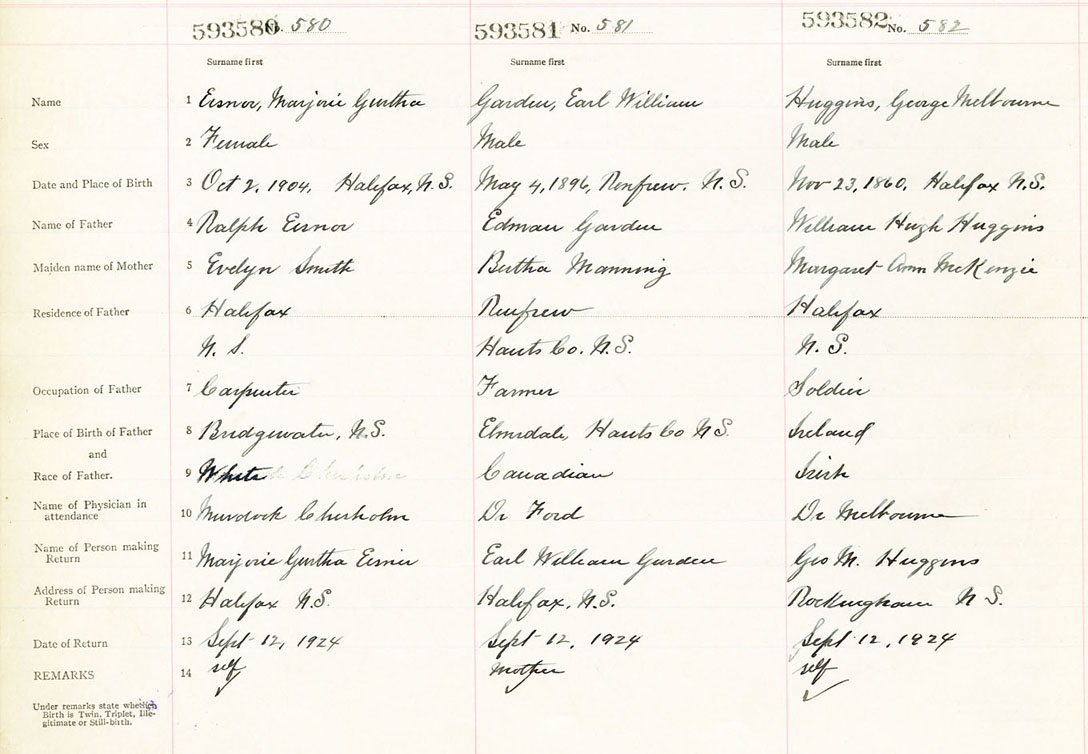 593580 No. 580 593581 No. 581 593582 No. 582
Surname first Surname first Surname first
Name 1 Eisnor, Marjorie Gertha Garden, Earl William Huggins, George Melbourne
Sex 2 Female Male Male
Date and Place of Birth 3 Oct 2, 1904, Halifax, N.S. May 4, 1896, Renfrew, N.S. Nov 23, 1860, Halifax N.S.
Name of Father 4 Ralph Eisnor Edman Garden William Hugh Huggins
Maiden name of Mother 5 Evelyn Smith Bertha Manning Margaret Ann McKenzie
Residence of Father 6 Halifax Renfrew Halifax
N. S. Hants Co. N.S. N. S.
Occupation of Father 7 Carpenter Farmer Soldier
Place of Birth of Father 8 Bridgewater, N.S. Elmsdale, Hants Co N.S. Ireland
and
Race of Father. 9 White Canadian Irish
Name of Physician in
attendance 10 Murdock Chisholm Dr Ford Dr Melbourne
Name of Person making
Return 11 Marjorie Gertha Eisnor Earl William Garden Geo M. Huggins
Address of Person making
Return 12 Halifax N.S. Halifax, N.S. Rockingham N S.
Date of Return 13 Sept 12, 1924 Sept 12, 1924 Sept 12, 1924
REMARKS 14 self mother self
Under remarks state whether
Birth is Twin, Triplet, Ille-
gitimate or Still-birth.